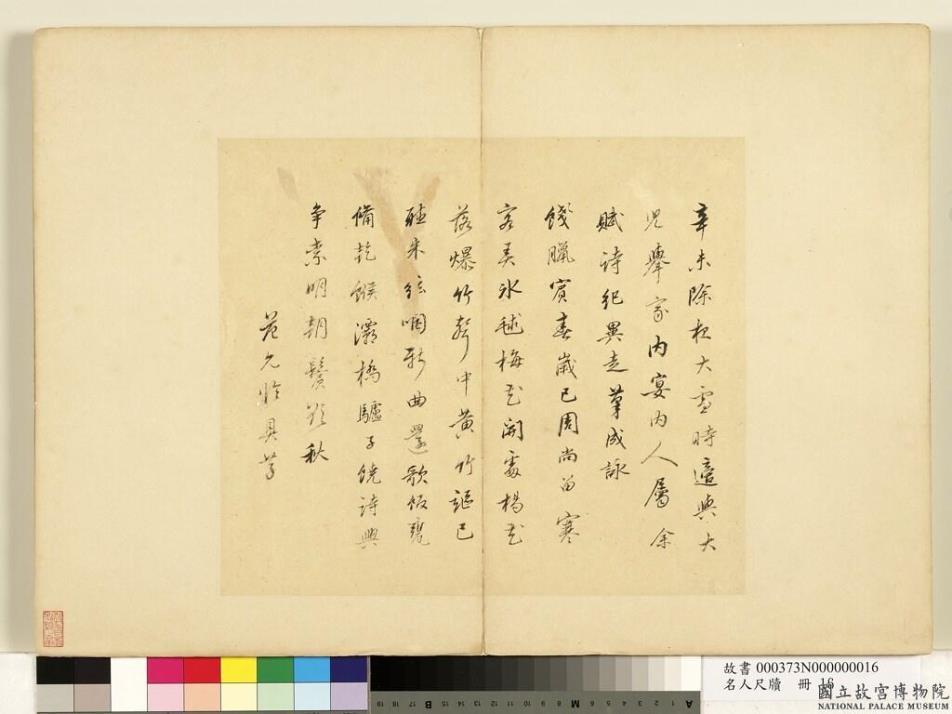 辛未除夜大雪時適與大
兒舉家內宴內人屬余
賦詩紀異走筆成詠
餞臘賓春歲已周尚留寒
客弄冰毬梅花開處楊花
落爆竹聲中黃竹謳已
聽朱絃喧新曲還歌
備乾餱灞橋驢子饒詩興
爭索明朝鬢欲秋
范允臨具草
故書 000373N000000016
名人尺牘 冊 16
國立故宮博物院
NATIONAL PALACE MUSEUM